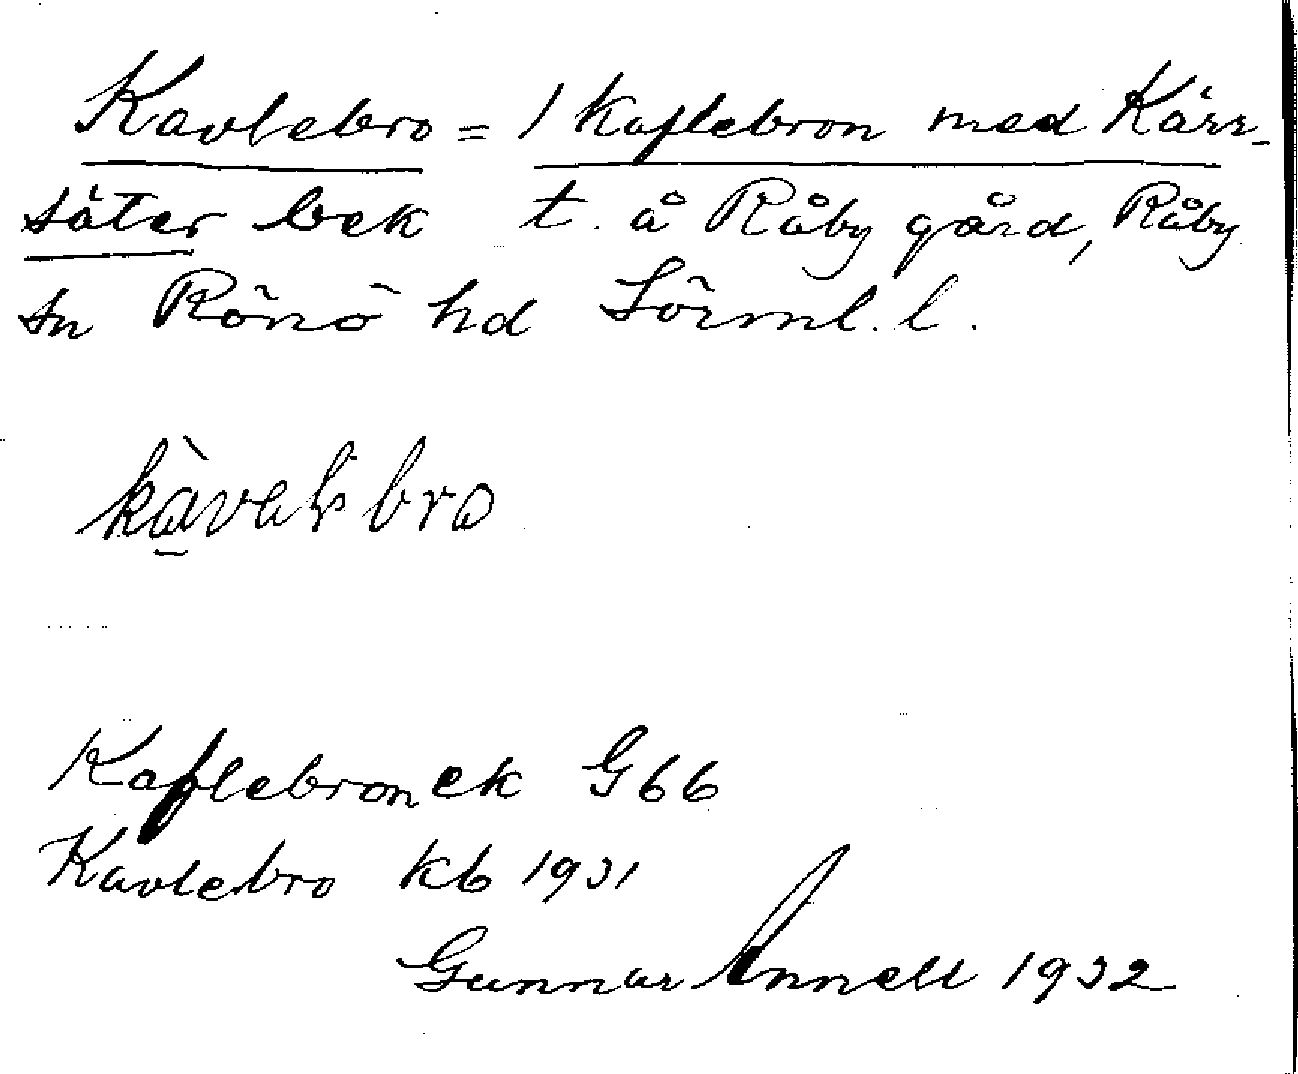 Kavlebro = 1 Kaflebron med Kärr-
säter bek t. å Råby gård, Råby
sn Rönö hd Sörml. l.
kàvəlsbro
Kaflebron ek G 66
Kavlebro kb 1931
Gunnar Annell 1932